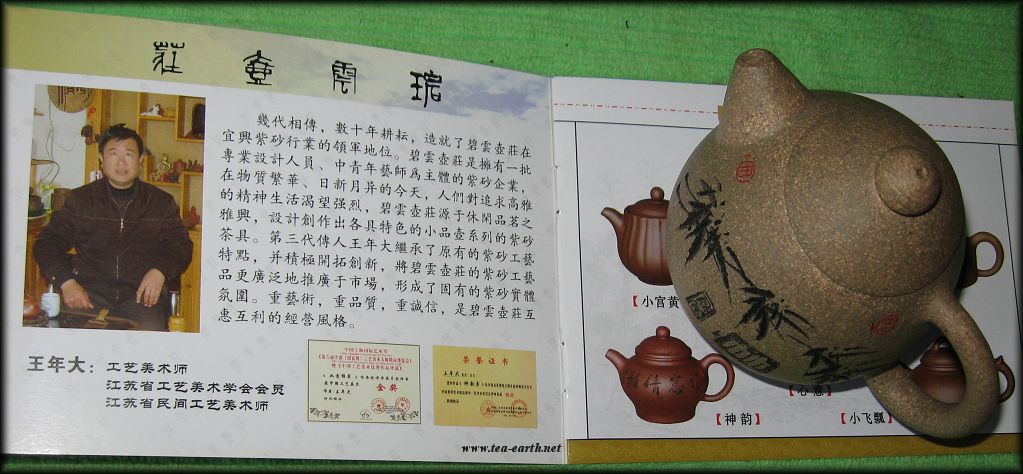 莊壺雲碧
幾代相傳，數十年耕耘，造就了碧雲壺莊在
宜興紫砂行業的領軍地位。碧雲壺莊是擁有一批
專業設計人員、中青年藝師爲主體的紫砂企業，
在物質繁華、日新月异的今天，人們對追求高雅
的精神生活渴望强烈，碧雲壺莊源于休閑品茗之
雅興，設計創作出各具特色的小品壺系列的紫砂
茶具。第三代傳人王年大繼承了原有的紫砂工藝
特點，并積極開拓創新，將碧雲壺莊的紫砂工藝
品更廣泛地推廣于市場，形成了固有的紫砂實體
氛圍。重藝術，重品質，重誠信，是碧雲壺莊互
惠互利的經營風格。
王年大：工艺美术师
江苏省工艺美术学会会员
江苏省民间工艺美术师
金奖
荣誉证书
www.tea-earth.net
【小宫黄
【神韵】
【心意】
【小飞瓢】